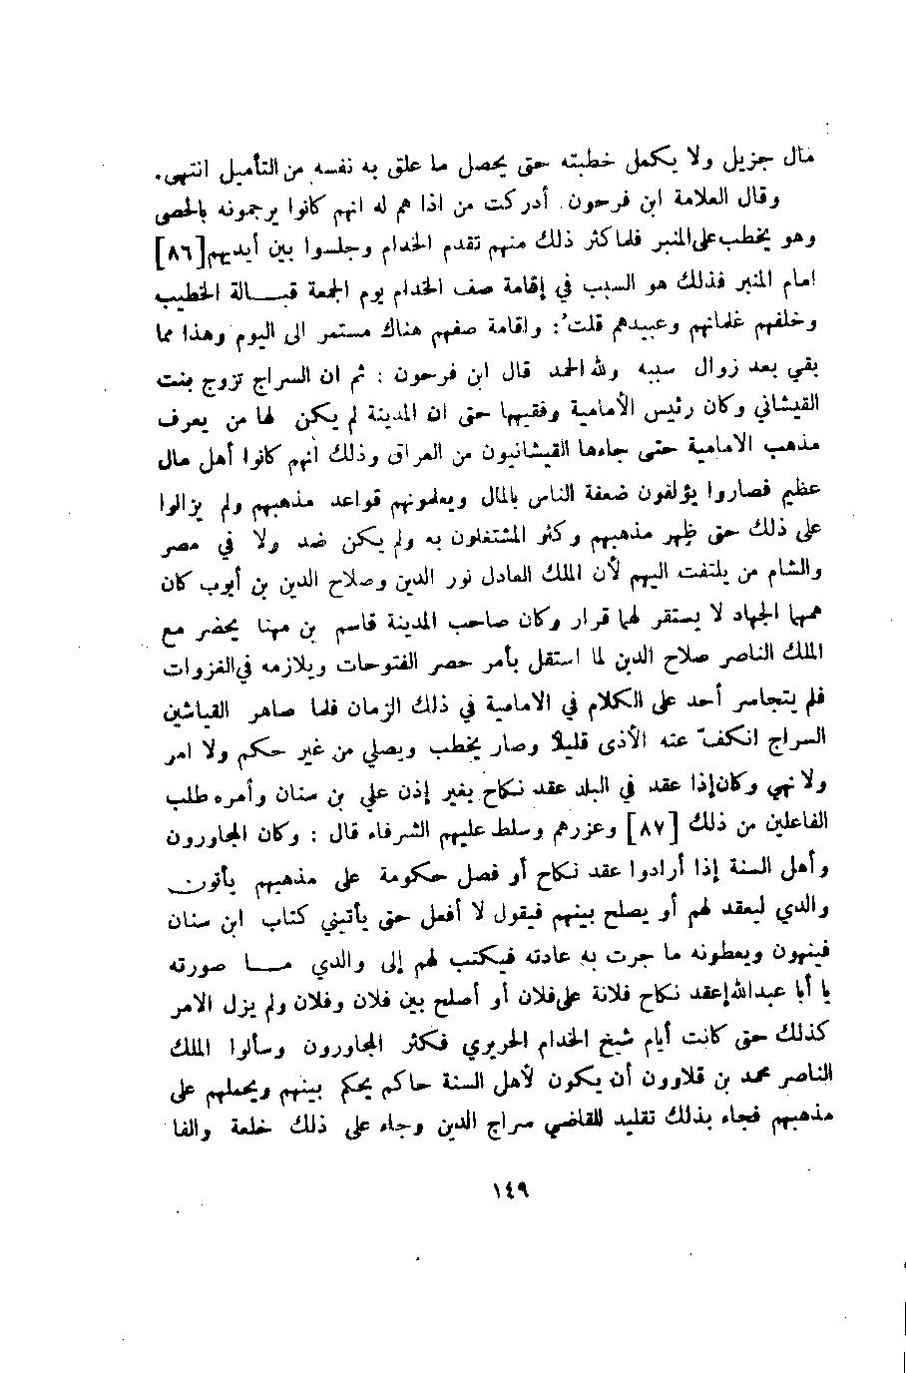 مال جزيل ولا يكمل خطبته حتى يحصل ما علق به نفسه من التأميل انتهى.
وقال العلامة ابن فرحون. أدركت من اذا هم له انهم كانوا يرجمونه بالحصى
وهو يخطب على المنبر فلما كثر ذلك منهم تقدم الخدام وجلسوا بين أيديهم [٨٦]
امام المنبر فذلك هو السبب في إقامة صف الخدام يوم الجمعة قبـالة الخطيب
وخلفهم غلمانهم وعبيدهم قلتُ: وإقامة صفهم هناك مستمر الى اليوم وهذا مما
بقي بعد زوال سببه ولله الحمد قال ابن فرحون : ثم ان السراج تزوج بنت
القيشاني وكان رئيس الأمامية وفقيهها حتى ان المدينة لم يكن لها من يعرف
مذهب الامامية حتى جاءها القيشانيون من العراق وذلك أنهم كانوا أهل مال
عظيم فصاروا يؤلفون ضعفة الناس بالمال ويعلمونهم قواعد مذهبهم ولم يزالوا
على ذلك حتى ظهر مذهبهم وكثر المشتغلون به ولم يكن ضد ولا في مصر
والشام من يلتفت اليهم لأن الملك العادل نور الدين وصلاح الدين بن أيوب كان
همهما الجهاد لا يستقر لهما قرار وكان صاحب المدينة قاسم بن مهنا يحضر مع
الملك الناصر صلاح الدين لما استقل بأمر حصر الفتوحات ويلازمه في الغزوات
فلم يتجاسر أحد على الكلام في الامامية في ذلك الزمان فلما صاهر القياشين
السراج انكفّ عنه الأذى قليلاً وصار يخطب ويصلي من غير حكم ولا امر
ولا نهي وكان إذا عقد في البلد عقد نكاح بغير إذن علي بن سنان وأمره طلب
الفاعلين من ذلك [٨٧] وعزرهم وسلط عليهم الشرفاء قال : وكان المجاورون
وأهل السنة إذا أرادوا عقد نكاح أو فصل حكومة على مذهبهم يأتون
والدي ليعقد لهم أو يصلح بينهم فيقول لا أفعل حتى يأتيني كتاب ابن سنان
فينهون ويعطونه ما جرت به عادته فيكتب لهم إلى والدي مـا صورته
يا أبا عبدالله إعقد نكاح فلانة على فلان أو أصلح بين فلان وفلان ولم يزل الامر
كذلك حتى كانت أيام شيخ الخدام الحريري فكثر المجاورون وسألوا الملك
الناصر محمد بن قلاوون أن يكون لأهل السنة حاكم يحكم بينهم ويحملهم على
مذهبهم فجاء بذلك تقليد للقاضي سراج الدين وجاء على ذلك خلعة والفا
١٤٩